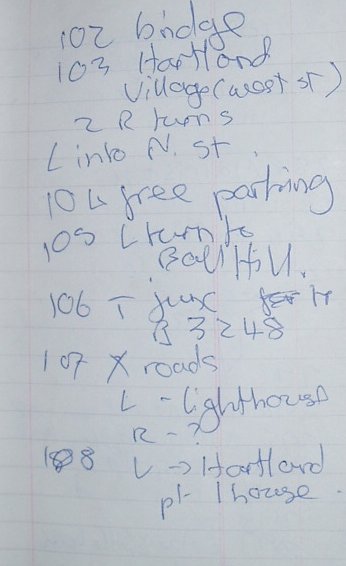 102 bridge
103 Hartland
Village (west st)
2 R turns
L into N. st.
104 free parking
105 L turn to
Ball Hill.
106 T junx
B 3248
107 X roads
L - lighthouse
R - ?
108 L → Hartland
pt - lhouse.